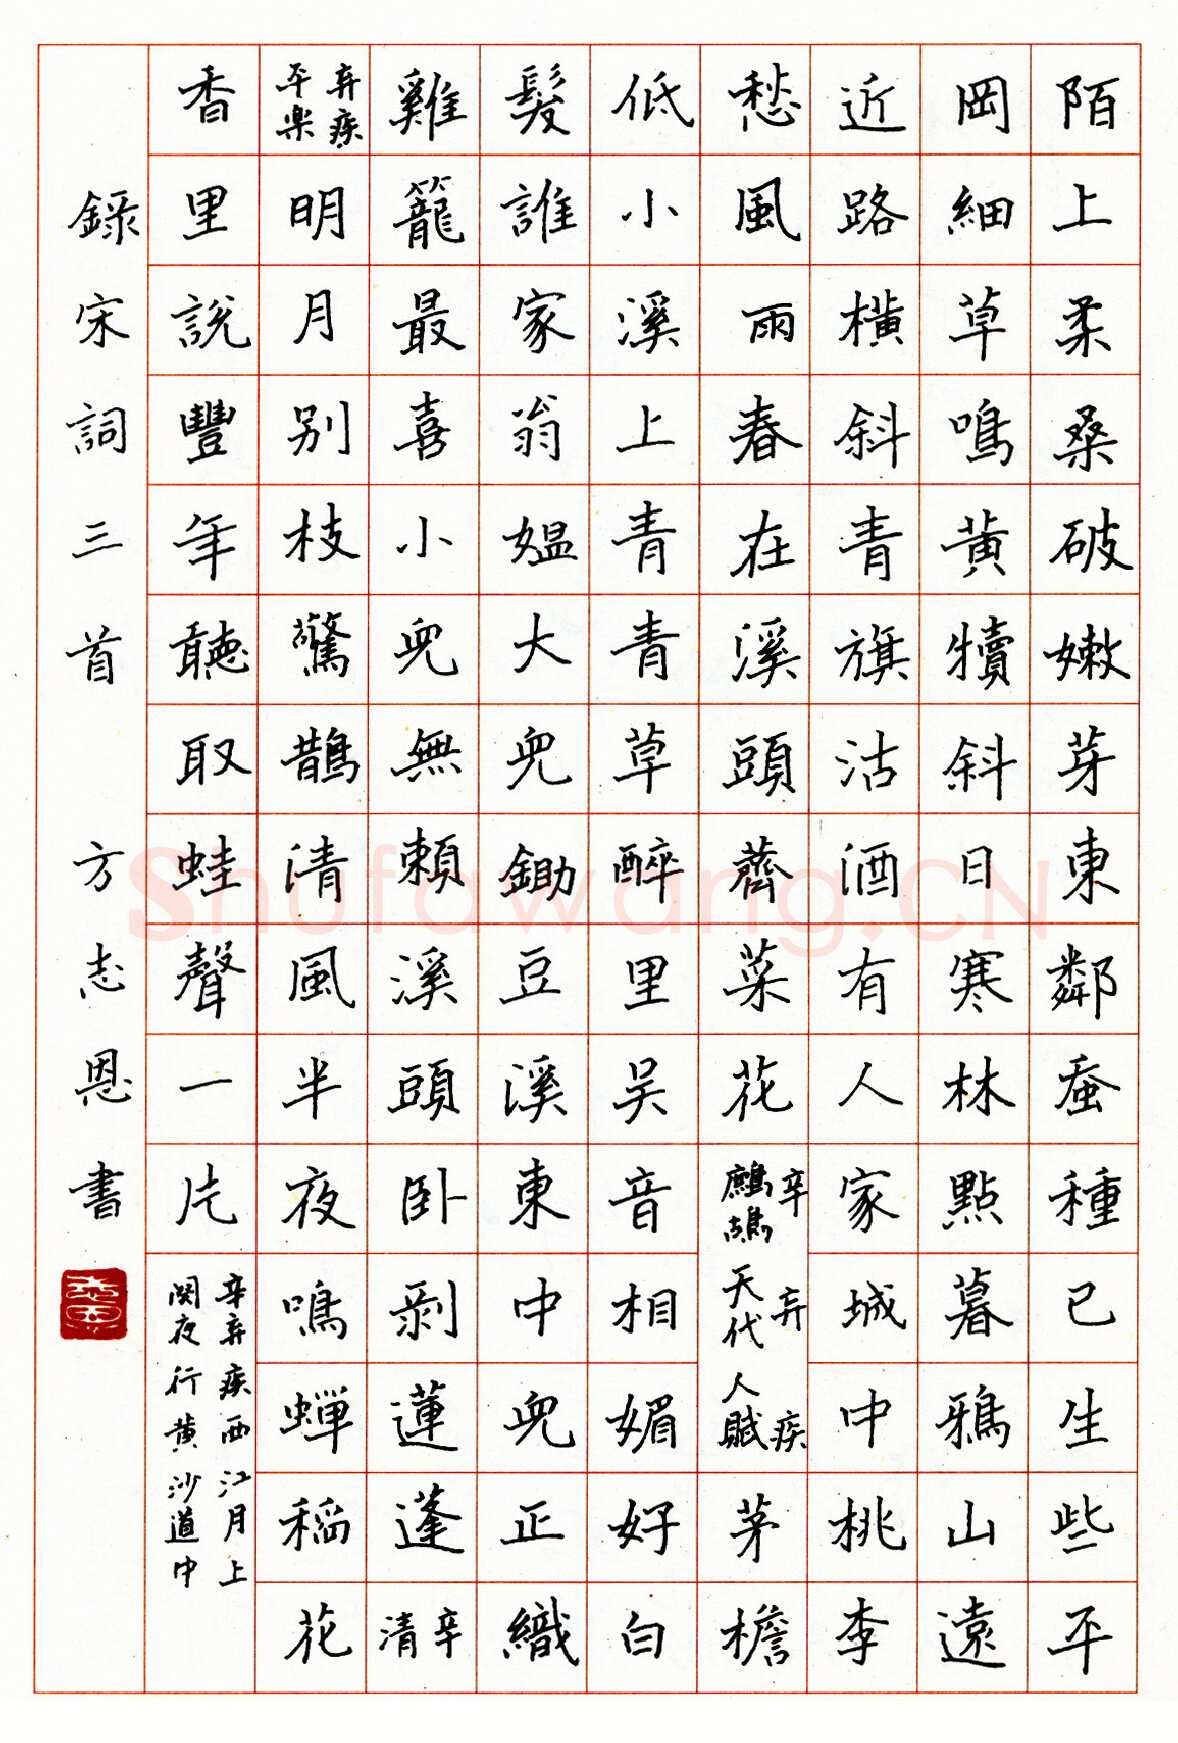 陌上柔桑破嫩芽東鄰蚕種已生些平
岡細草鳴黃犢斜日寒林點暮鴉山遠
近路橫斜青旗沽酒有人家城中桃李
愁風雨春在溪頭薺菜花
辛弃疾
鷓鴣天代人賦
茅檐
低小溪上青青草醉里吴音相媚好白
髮誰家翁媼大兒鋤豆溪東中兒正織
雞籠最喜小兒無賴溪頭卧剝蓮蓬
辛弃疾
清平樂
明月别枝驚鵲清風半夜鳴蟬稻花
香里說豐年聽取蛙聲一片
辛弃疾西江月上
関夜行黄沙道中
録宋詞三首 方志恩書
Shufawang.CN